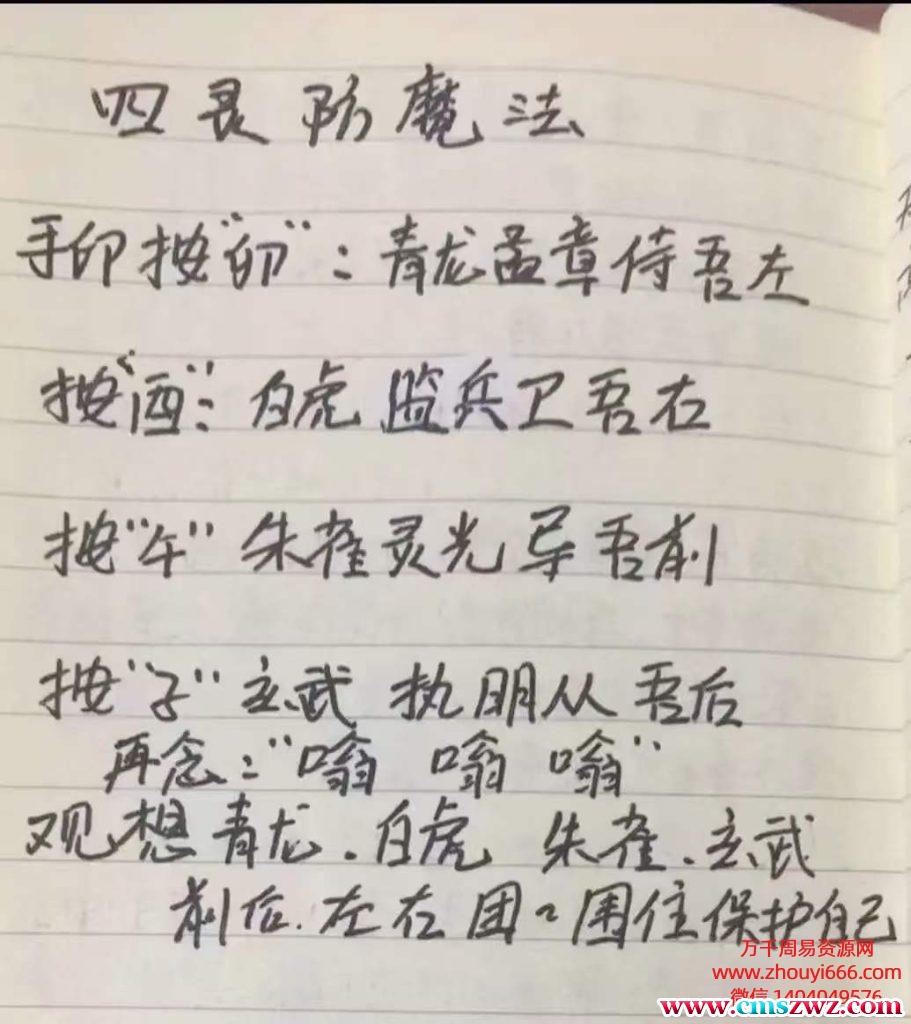 四灵防魔法
手印按"卯"：青龙孟章侍吾左
按"酉"：白虎 监兵卫吾右
按"午" 朱雀灵光导吾前
按"子" 玄武 执明从吾后
再念："嗡 嗡 嗡"
观想青龙.白虎 朱雀.玄武
前后.左右团々围住保护自己
万千周易资源网
www.zhouyi666.com
微信 1404049576
www.cmszwz.com